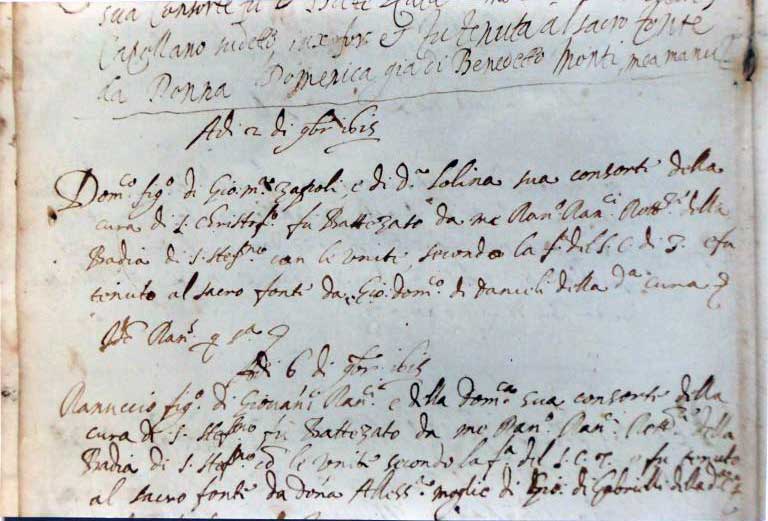 sua Consorte
Capellano sudetto iux for. et fu tenuta al sacro fonte
da Donna Domenica già di Benedetto Monti, mea manu
Adi 2 di 9bre 1615
Domco figo di Gio: mra Zapoli, e di da Lolina sua consorte della
cura di S. Christofo fu Battezato da me Rano Ranci Rettre della
Badia di S. Stefno con le unite, secondo la fa del S. C. di T. e fu
tenuto al sacro fonte da Gio: domco di Danieli della da cura
Rans q sa
Adi 6 di 9bre 1615
Ranuccio figo di Giovani Ranci e della Domca sua consorte della
cura di S. Stefno fu Battezato da me Rano Ranci Rettre della
Badia di S. Stefno cō le unite secondo la fa del S. C. e fu tenuto
al sacro fonte da dona Aless moglie di Gio: di Gabrielli della da